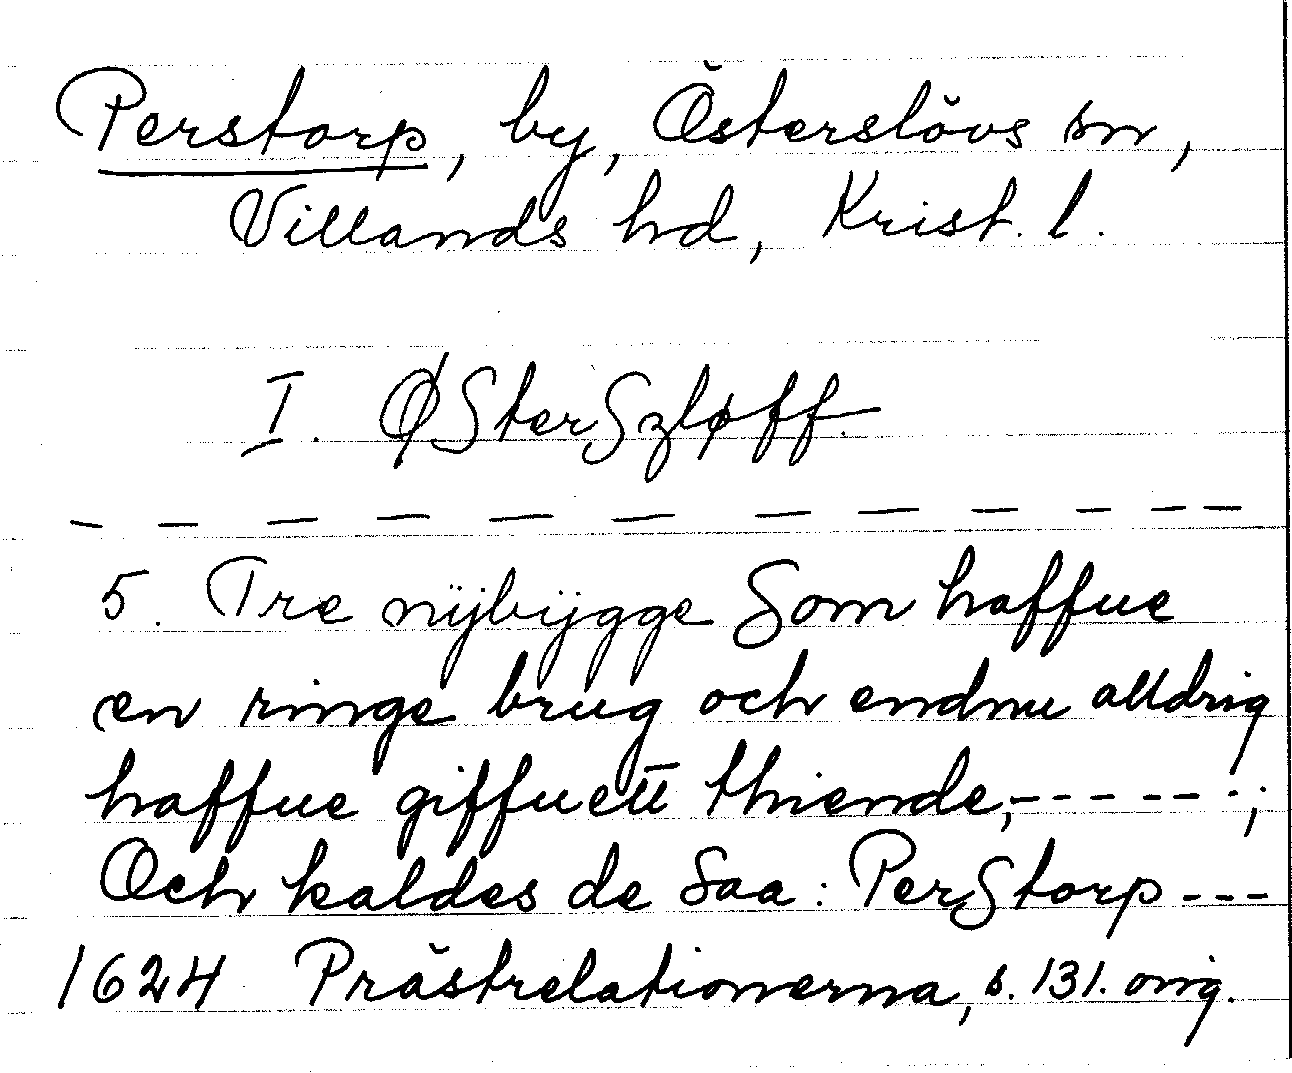 Perstorp, by, Österslövs sn,
Villands hd, Krist. l.
I. ØSterSzløff.
— — — — — — — — — — — —
5. Tre nÿbÿgge Som haffue
en ringe brug och endnu alldrig
haffue giffuett thiende,------;
Och kaldes de Saa: PerStorp ---
1624 Prästrelationerna, s. 131. orig.